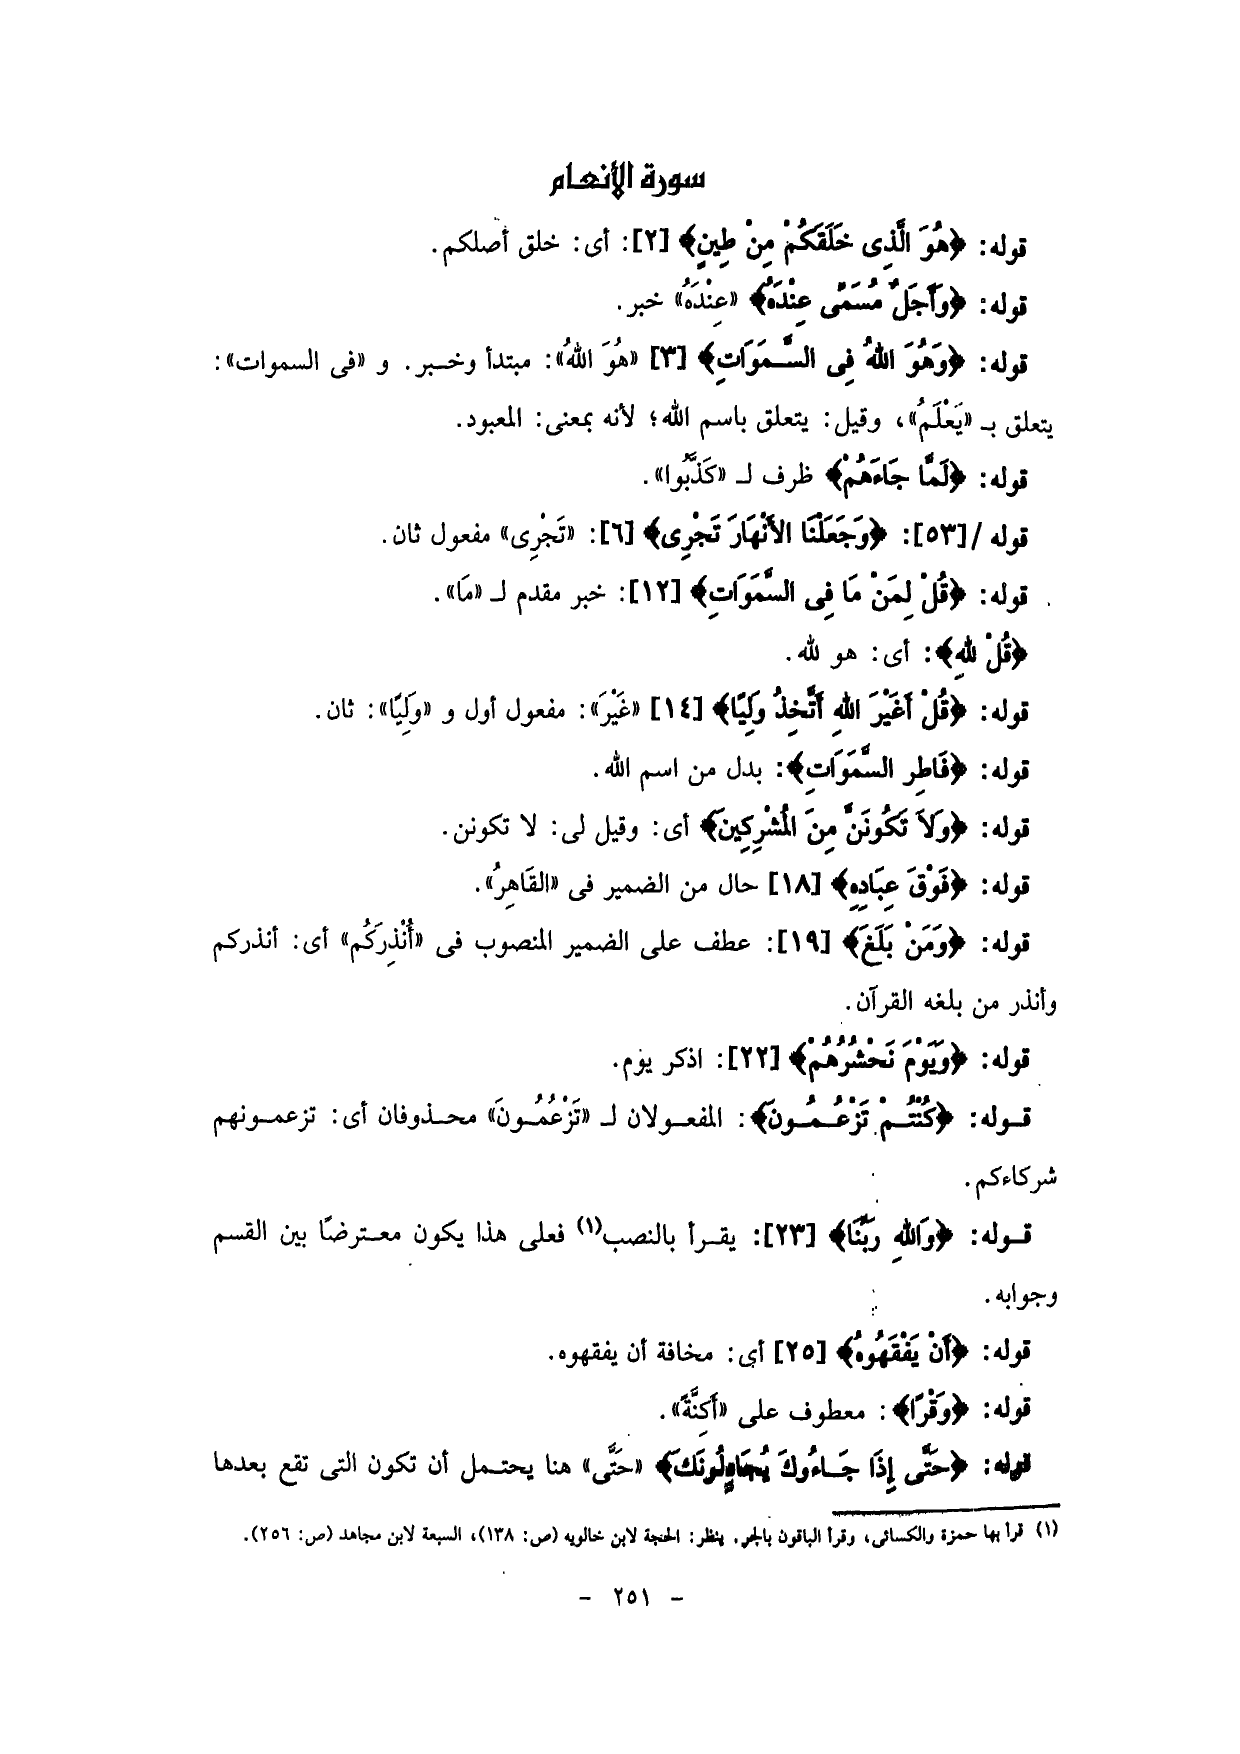 سورة الأنعام
قوله: ﴿هُوَ الَّذِى خَلَقَكُمْ مِنْ طِينٍ﴾ [٢]: أى: خلق أصلكم.
قوله: ﴿وَأَجَلٌ مُسَمًّى عِنْدَهُ﴾ «عِنْدَهُ» خبر.
قوله: ﴿وَهُوَ اللهُ فِى السَّمَوَاتِ﴾ [٣] «هُوَ اللهُ»: مبتدأ وخبر. و «فى السموات»:
يتعلق بـ «يَعْلَمُ»، وقيل: يتعلق باسم الله؛ لأنه بمعنى: المعبود.
قوله: ﴿لَمَّا جَاءَهُمْ﴾ ظرف لـ «كَذَّبُوا».
قوله /[٥٣]: ﴿وَجَعَلْنَا الأَنْهَارَ تَجْرِى﴾ [٦]: «تَجْرِى» مفعول ثان.
قوله: ﴿قُلْ لِمَنْ مَا فِى السَّمَوَاتِ﴾ [١٢]: خبر مقدم لـ «مَا».
﴿قُلْ للهِ﴾: أى: هو لله.
قوله: ﴿قُلْ أَغَيْرَ اللهِ أَتَّخِذُ وَلِيًّا﴾ [١٤] «غَيْرَ»: مفعول أول و «وَلِيًّا»: ثان.
قوله: ﴿فَاطِرِ السَّمَوَاتِ﴾: بدل من اسم الله.
قوله: ﴿وَلاَ تَكُونَنَّ مِنَ الْمُشْرِكِينَ﴾ أى: وقيل لى: لا تكونن.
قوله: ﴿فَوْقَ عِبَادِهِ﴾ [١٨] حال من الضمير فى «القَاهِرُ».
قوله: ﴿وَمَنْ بَلَغَ﴾ [١٩]: عطف على الضمير المنصوب فى «أُنْذِرَكُم» أى: أنذركم
وأنذر من بلغه القرآن.
قوله: ﴿وَيَوْمَ نَحْشُرُهُمْ﴾ [٢٢]: اذكر يوم.
قوله: ﴿كُنْتُمْ تَزْعُمُونَ﴾: المفعولان لـ «تَزْعُمُونَ» محذوفان أى: تزعمونهم
شركاءكم.
قوله: ﴿وَاللهِ رَبِّنَا﴾ [٢٣]: يقرأ بالنصب(١) فعلى هذا يكون معترضًا بين القسم
وجوابه.
قوله: ﴿أَنْ يَفْقَهُوهُ﴾ [٢٥] أى: مخافة أن يفقهوه.
قوله: ﴿وَقْرًا﴾: معطوف على «أَكِنَّةً».
قوله: ﴿حَتَّى إِذَا جَاءُوكَ يُجَادِلُونَكَ﴾ «حَتَّى» هنا يحتمل أن تكون التى تقع بعدها
(١) قرأ بها حمزة والكسائى، وقرأ الباقون بالجر. ينظر: الحجة لابن خالويه (ص: ١٣٨)، السبعة لابن مجاهد (ص: ٢٥٦).
- ٢٥١ -